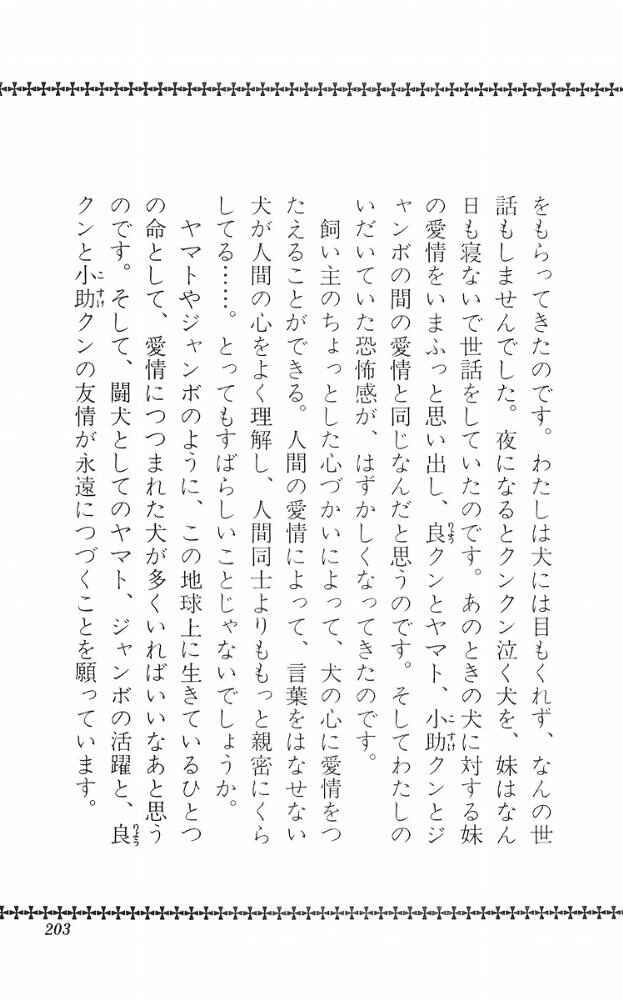 をもらってきたのです。わたしは犬には目もくれず、なんの世
話もしませんでした。夜になるとクンクン泣く犬を、妹はなん
日も寝ないで世話をしていたのです。あのときの犬に対する妹
の愛情をいまふっと思い出し、良りょうクンとヤマト、小助こすけクンとジ
ャンボの間の愛情と同じなんだと思うのです。そしてわたしの
いだいていた恐怖感が、はずかしくなってきたのです。
飼い主のちょっとした心づかいによって、犬の心に愛情をつ
たえることができる。人間の愛情によって、言葉をはなせない
犬が人間の心をよく理解し、人間同士よりももっと親密にくら
してる……。とってもすばらしいことじゃないでしょうか。
ヤマトやジャンボのように、この地球上に生きているひとつ
の命として、愛情につつまれた犬が多くいればいいなあと思う
のです。そして、闘犬としてのヤマト、ジャンボの活躍と、良りょう
クンと小助こすけクンの友情が永遠につづくことを願っています。
203